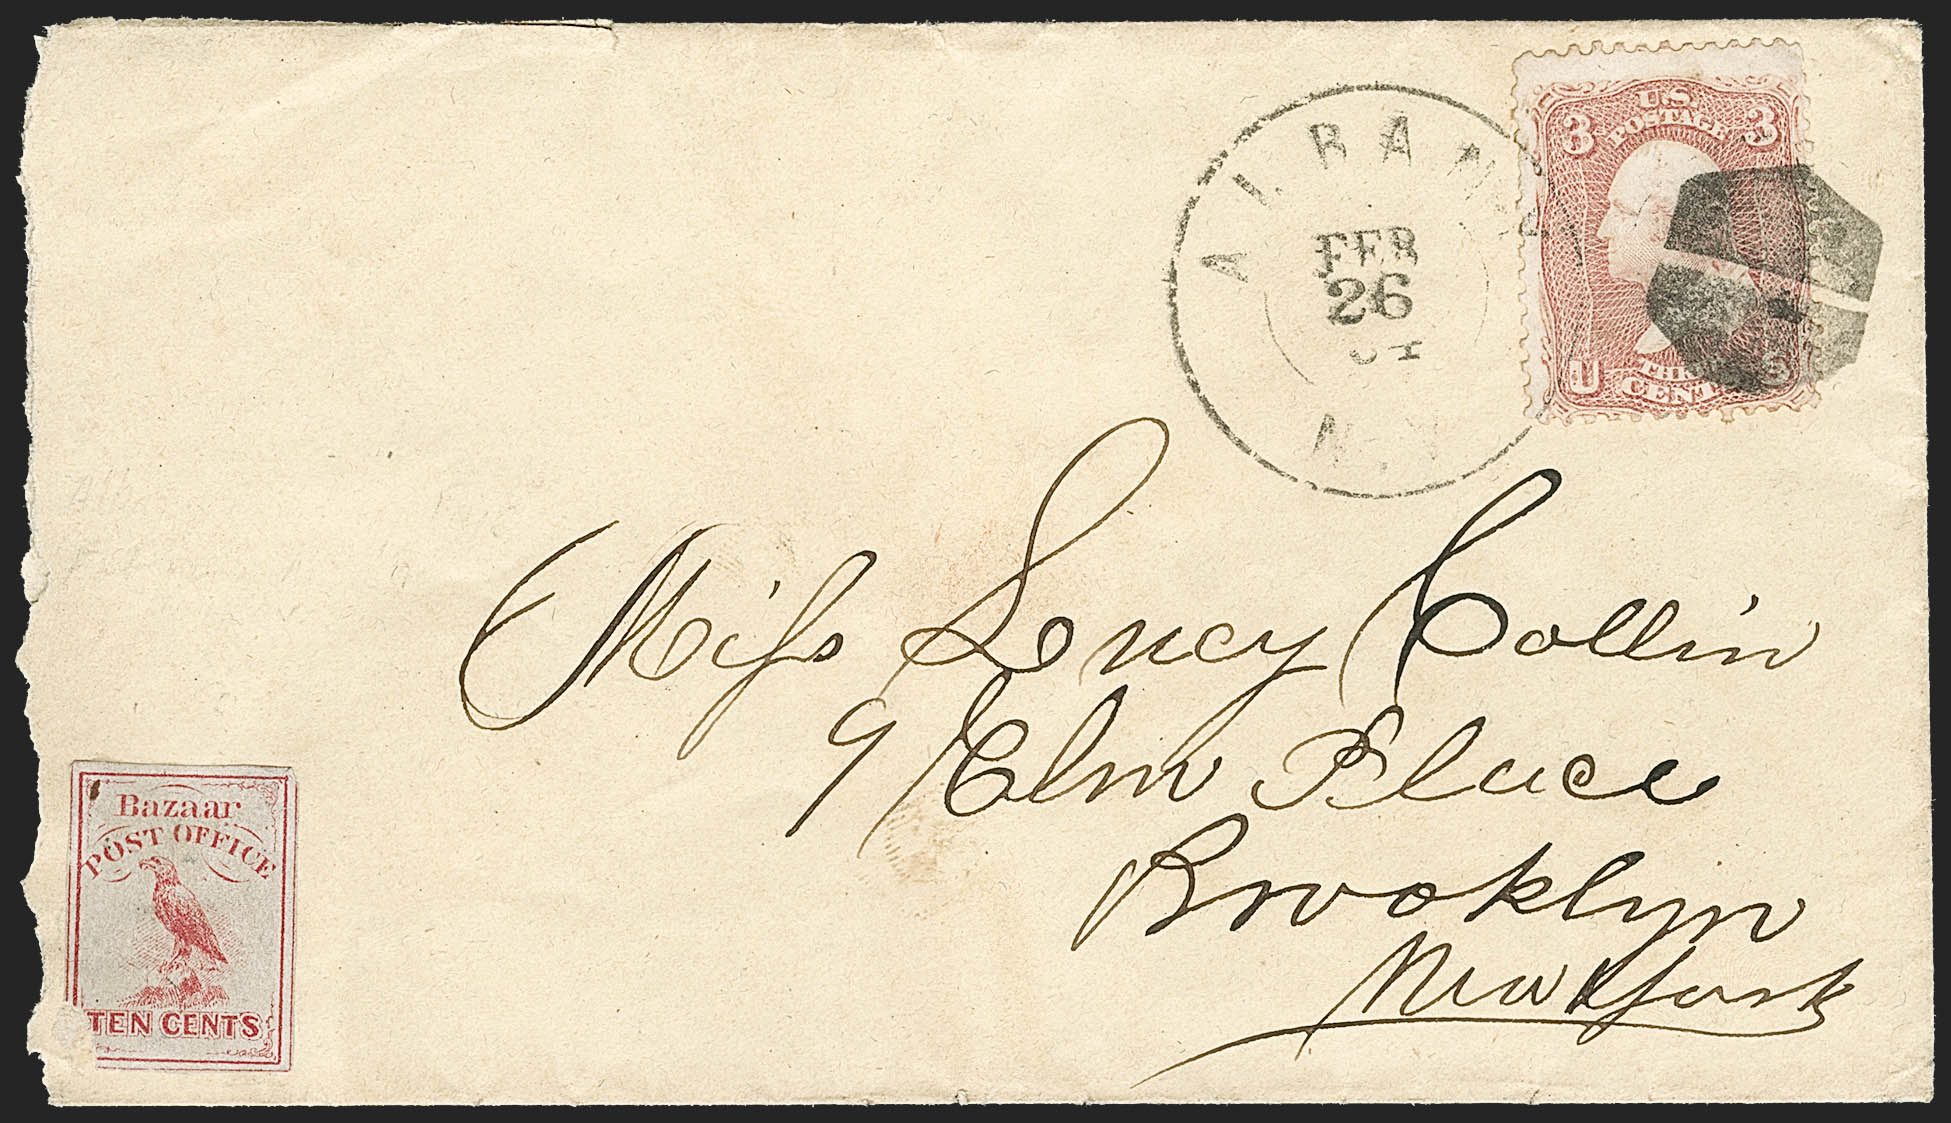 ALBANY
FEB
26
N.Y.
U.S.
POSTAGE
3 3
U S
THR
CENT
Miss Lucy Collin
9 Elm Place
Brooklyn
New York
Bazaar
POST OFFICE
TEN CENTS